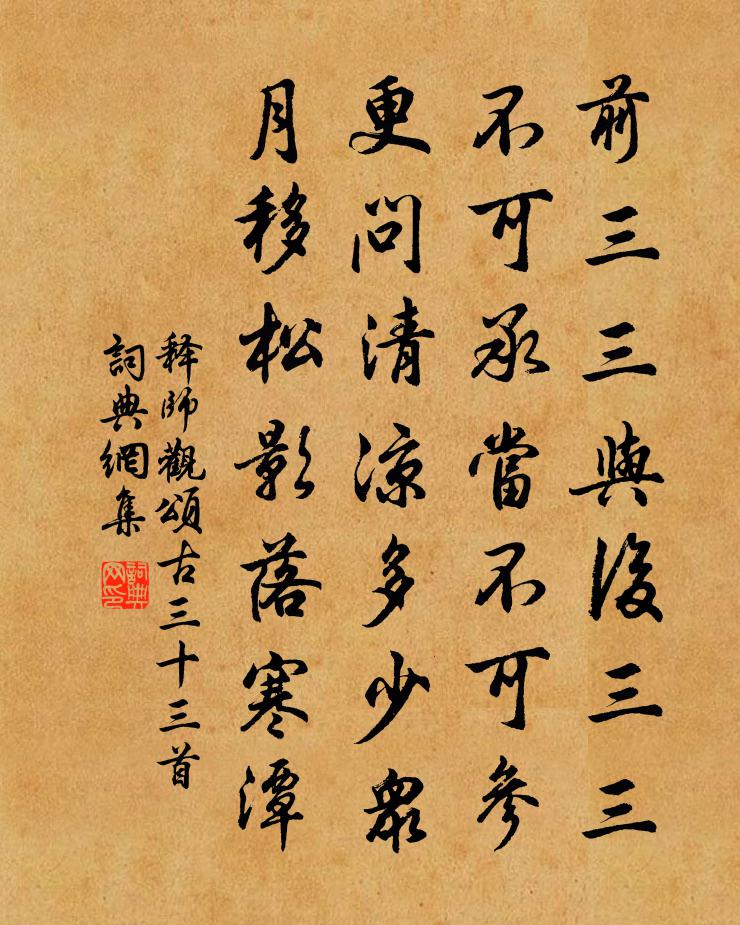 前三三與後三三
不可承當不可參
更問清涼多少眾
月移松影落寒潭
释師觀頌古三十三首
詞典網集
詞典网印